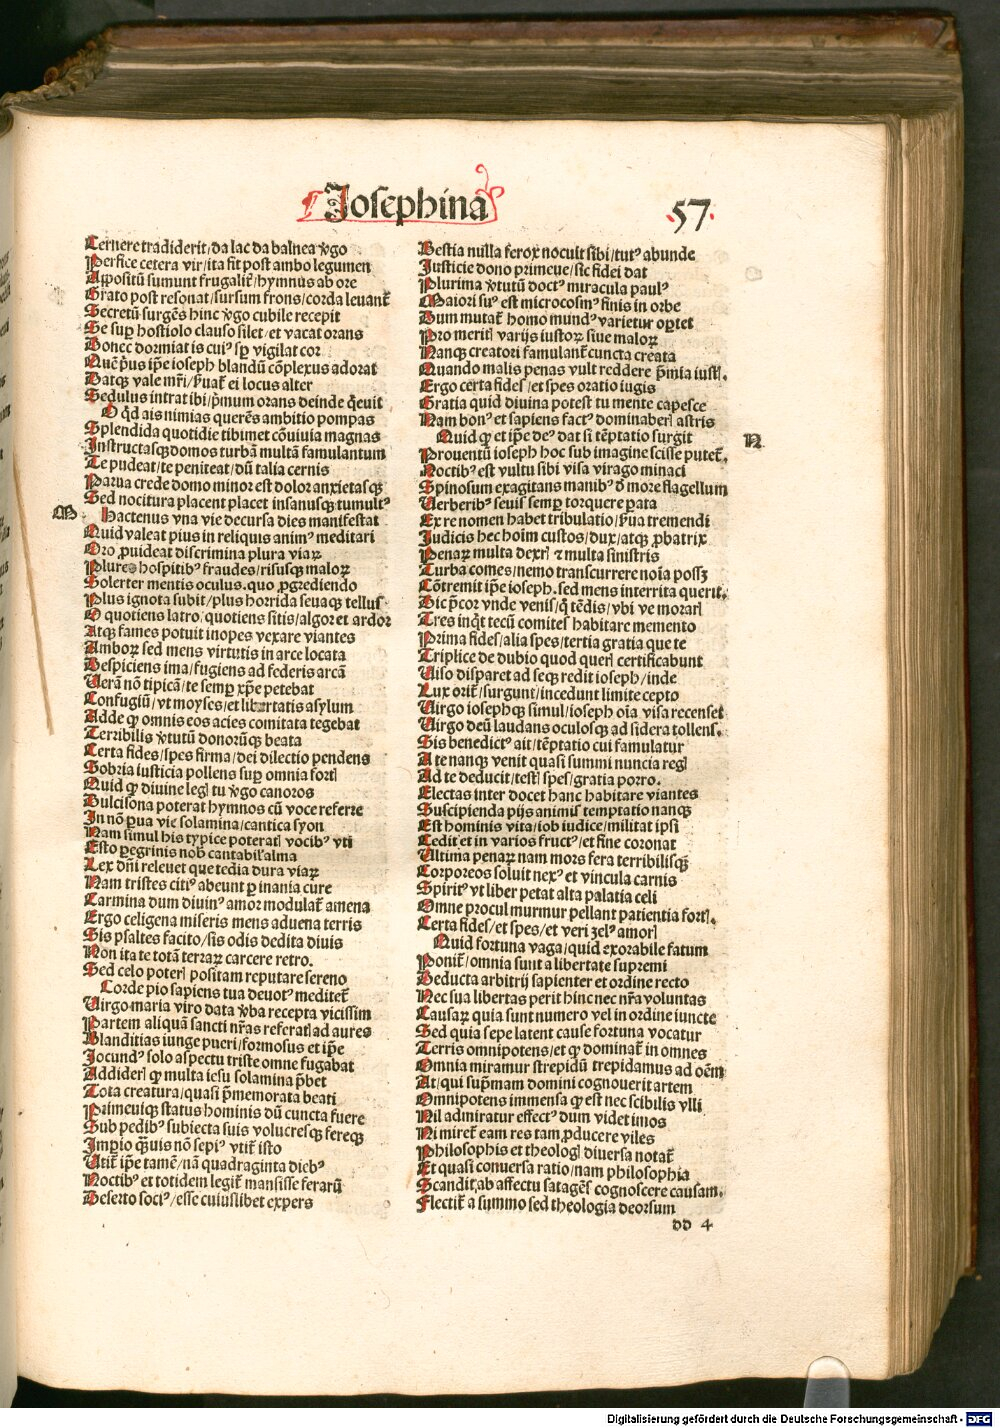 Josephina
57
Cernere tradiderit/da lac da balnea v̾go
Perfice cetera vir/ita fit post ambo legumen
Appositū sumunt frugalit̄/hymnus ab ore
Grato post resonat/sursum frons/corda leuant̄
Secretū surgēs hinc v̾go cubile recepit
Se suꝑ hostiolo clauso silet/et vacat orans
Donec dormiat is cuiꝰ sꝑ vigilat cor
Quē p̄us ip̄e ioseph blandū cōplexus adorat
Datqꝫ vale mr̄i/p̄uat̄ ei locus alter
Sedulus intrat ibi/p̄mum orans deinde q̄euit
O qd̄ ais nimias querēs ambitio pompas
Splendida quotidie tibimet cōuiuia magnas
Instructasqꝫ domos turbā multā famulantum
Te pudeat/te peniteat/dū talia cernis
Parua crede domo minor est dolor anxietasqꝫ
Sed nocitura placent placet insanusqꝫ tumultꝰ
M
Hactenus vna vie decursa dies manifestat
Quid valeat pius in reliquis animꝰ meditari
Oro ꝓuideat discrimina plura viaꝝ
Plures hospitibꝰ fraudes/risusqꝫ maloꝝ
Solerter mentis oculus.quo ꝓgrediendo
Plus ignota subit/plus horrida seuaqꝫ tellus
O quotiens latro/quotiens sitis/algor et ardor
Atqꝫ fames potuit inopes vexare viantes
Amboꝝ sed mens virtutis in arce locata
Despiciens ima/fugiens ad federis arcā
Verā nō tipicā/te semꝑ xp̄e petebat
Confugiū/vt moyses/et libertatis asylum
Adde ꝙ omnis eos acies comitata tegebat
Terribilis v̾tutū donorūqꝫ beata
Certa fides/spes firma/dei dilectio pendens
Sobria iusticia pollens suꝑ omnia fortꝭ
Quid ꝙ diuine legꝭ tu v̾go canoros
Dulcisona poterat hymnos cū voce referre
In nō ꝑua vie solamina/cantica syon
Nam simul his typice poteratꝭ vocibꝰ vti
Esto ꝑegrinis nob̄ cantabil̾ alma
Lex dn̄i releuet que tedia dura viaꝝ
Nam tristes citiꝰ abeunt ꝑ inania cure
Carmina dum diuinꝰ amor modulat̄ amena
Ergo celigena miseris mens aduena terris
Sis psaltes facito/sis odis dedita diuis
Non ita te totā terraꝝ carcere retro.
Sed celo poterꝭ positam reputare sereno
Corde pio sapiens tua deuotꝰ meditet̄
Virgo maria viro data v̾ba recepta vicissim
Partem aliquā sancti nr̄as referatꝭ ad aures
Blanditias iunge pueri/formosus et ip̄e
Jocundꝰ solo aspectu triste omne fugabat
Adiderꝭ ꝙ multa iesu solamina p̄bet
Tota creatura/quasi p̄memorata beati
Primeuiqꝫ status hominis dū cuncta fuere
Sub pedibꝰ subiecta suis volucresqꝫ fereqꝫ
Imꝑio q̄uis nō sepiꝰ vtit̄ isto
Vtit̄ ip̄e tamē/nā quadraginta diebꝰ
Noctibꝰ et totidem legit̄ mansisse ferarū
Deserto sociꝰ/esse cuiuslibet expers
Bestia nulla ferox nocuit sibi/tutꝰ abunde
Justicie dono primeue/sic fidei dat
Plurima v̾tutū doctꝰ miracula paulꝰ
Maiori suꝰ est microcosmꝰ finis in orbe
Dum mutat̄ homo mundꝰ varietur oꝑtet
Pro meritꝭ varijs iustoꝝ siue maloꝝ
Nanqꝫ creatori famulant̄ cuncta creata
Quando malis penas vult reddere p̄mia iustꝭ.
Ergo certa fides/et spes oratio iugis
Gratia quid diuina potest tu mente capesce
Nam bonꝰ et sapiens factꝰ dominaberꝭ astris
N
Quid ꝙ et ip̄e deꝰ dat si tēptatio surgit
Prouentū ioseph hoc sub imagine scisse putet̄.
Noctibꝰ est vultu sibi visa virago minaci
Spinosum exagitans manibꝰ d̄ more flagellum
Verberibꝰ seuis semꝑ torquere ꝑata
Ex re nomen habet tribulatio/p̄ua tremendi
Judicis hec hoīm custos/dux/atqꝫ ꝓbatrix
Penaꝝ multa dextꝭ ⁊ multa sinistris
Turba comes/nemo transcurrere noīa possꝫ
Cōtremit ip̄e ioseph.sed mens interrita querit.
Dic p̄cor vnde venis/q̄ tēdis/vbi ve morarꝭ
Tres inqͥt tecū comites habitare memento
Prima fides/alia spes/tertia gratia que te
Triplice de dubio quod querꝭ certificabunt
Viso disparet ad seqꝫ redit ioseph/inde
Lux orit̄/surgunt/incedunt limite cepto
Virgo iosephqꝫ simul/ioseph oīa visa recenset
Virgo deū laudans oculosqꝫ ad sidera tollens.
Sis benedictꝰ ait/tēptatio cui famulatur
A te nanqꝫ venit quasi summi nuncia regꝭ
Ad te deducit/testꝭ spes/gratia porro.
Electas inter docet hanc habitare viantes
Suscipienda pijs animis temptatio nanqꝫ
Est hominis vita/iob iudice/militat ipsi
Cedit et in varios fructꝰ/et fine coronat
Vltima penaꝝ nam mors fera terribilisqꝫ
Corporeos soluit nexꝰ et vincula carnis
Spiritꝰ vt liber petat alta palatia celi
Omne procul murmur pellant patientia fortꝭ.
Certa fides/et spes/et veri zelꝰ amorꝭ
Quid fortuna vaga/quid exorabile fatum
Ponit̄/omnia sunt a libertate supremi
Deducta arbitrij sapienter et ordine recto
Nec sua libertas perit hinc nec nr̄a voluntas
Causaꝝ quia sunt numero vel in ordine iuncte
Sed quia sepe latent cause fortuna vocatur
Terris omnipotens/et ꝙ dominat̄ in omnes
Omnia miramur strepidū trepidamus ad oēm
At/qui sup̄mam domini cognouerit artem
Omnipotens immensa ꝙ est nec scibilis vlli
Nil admiratur effectꝰ dum videt imos
Ni miret̄ eam res tam ꝓducere viles
Philosophis et theologꝭ diuersa notat̄
Et quasi conuersa ratio/nam philosophia
Scandit ab affectu satagēs cognoscere causam.
Flectit̄ a summo sed theologia deorsum
dd 4
Digitalisierung gefördert durch die Deutsche Forschungsgemeinschaft - DFG